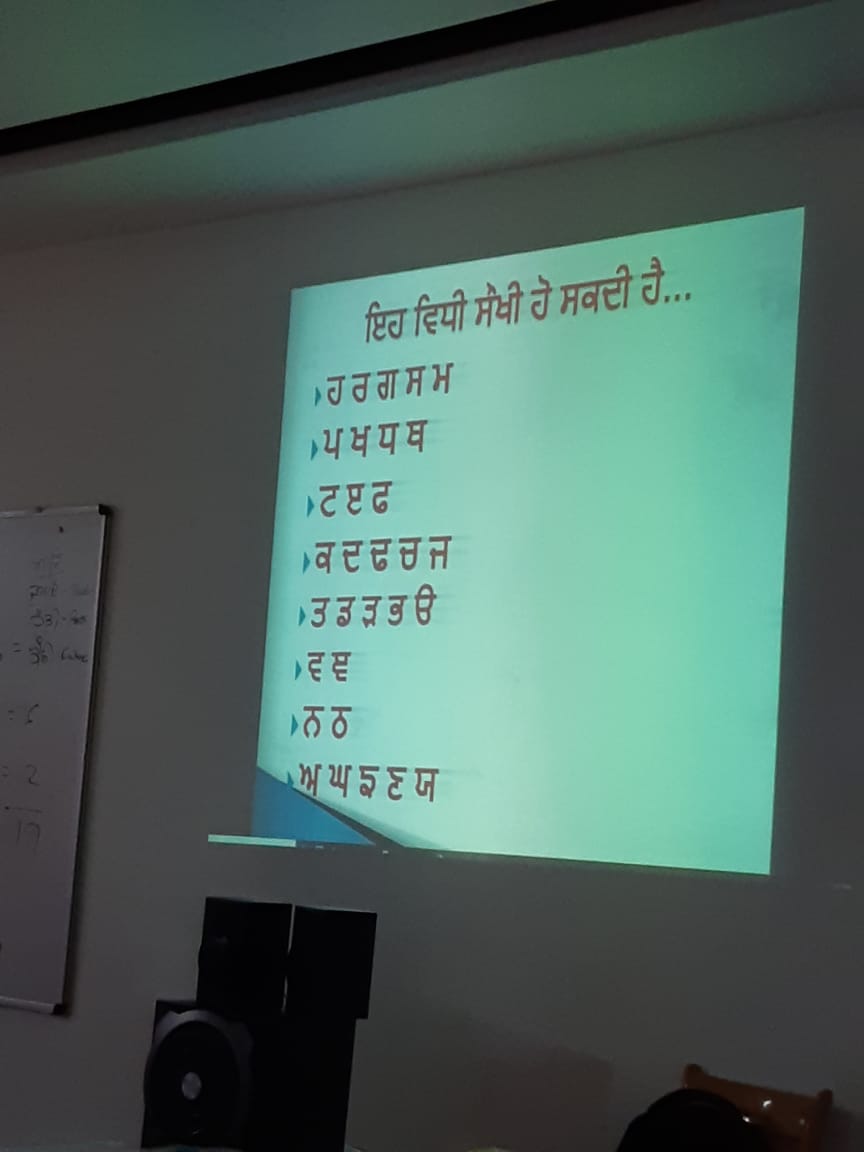 ਇਹ ਵਿਧੀ ਸੌਖੀ ਹੋ ਸਕਦੀ ਹੈ...
ਹ ਰ ਗ ਸ ਮ
ਪ ਖ ਧ ਥ
ਟ ੲ ਫ
ਕ ਦ ਢ ਚ ਜ
ਤ ਡ ੜ ਭ ੳ
ਵ ਞ
ਨ ਠ
ਅ ਘ ਙ ਣ ਯ
= 2
17